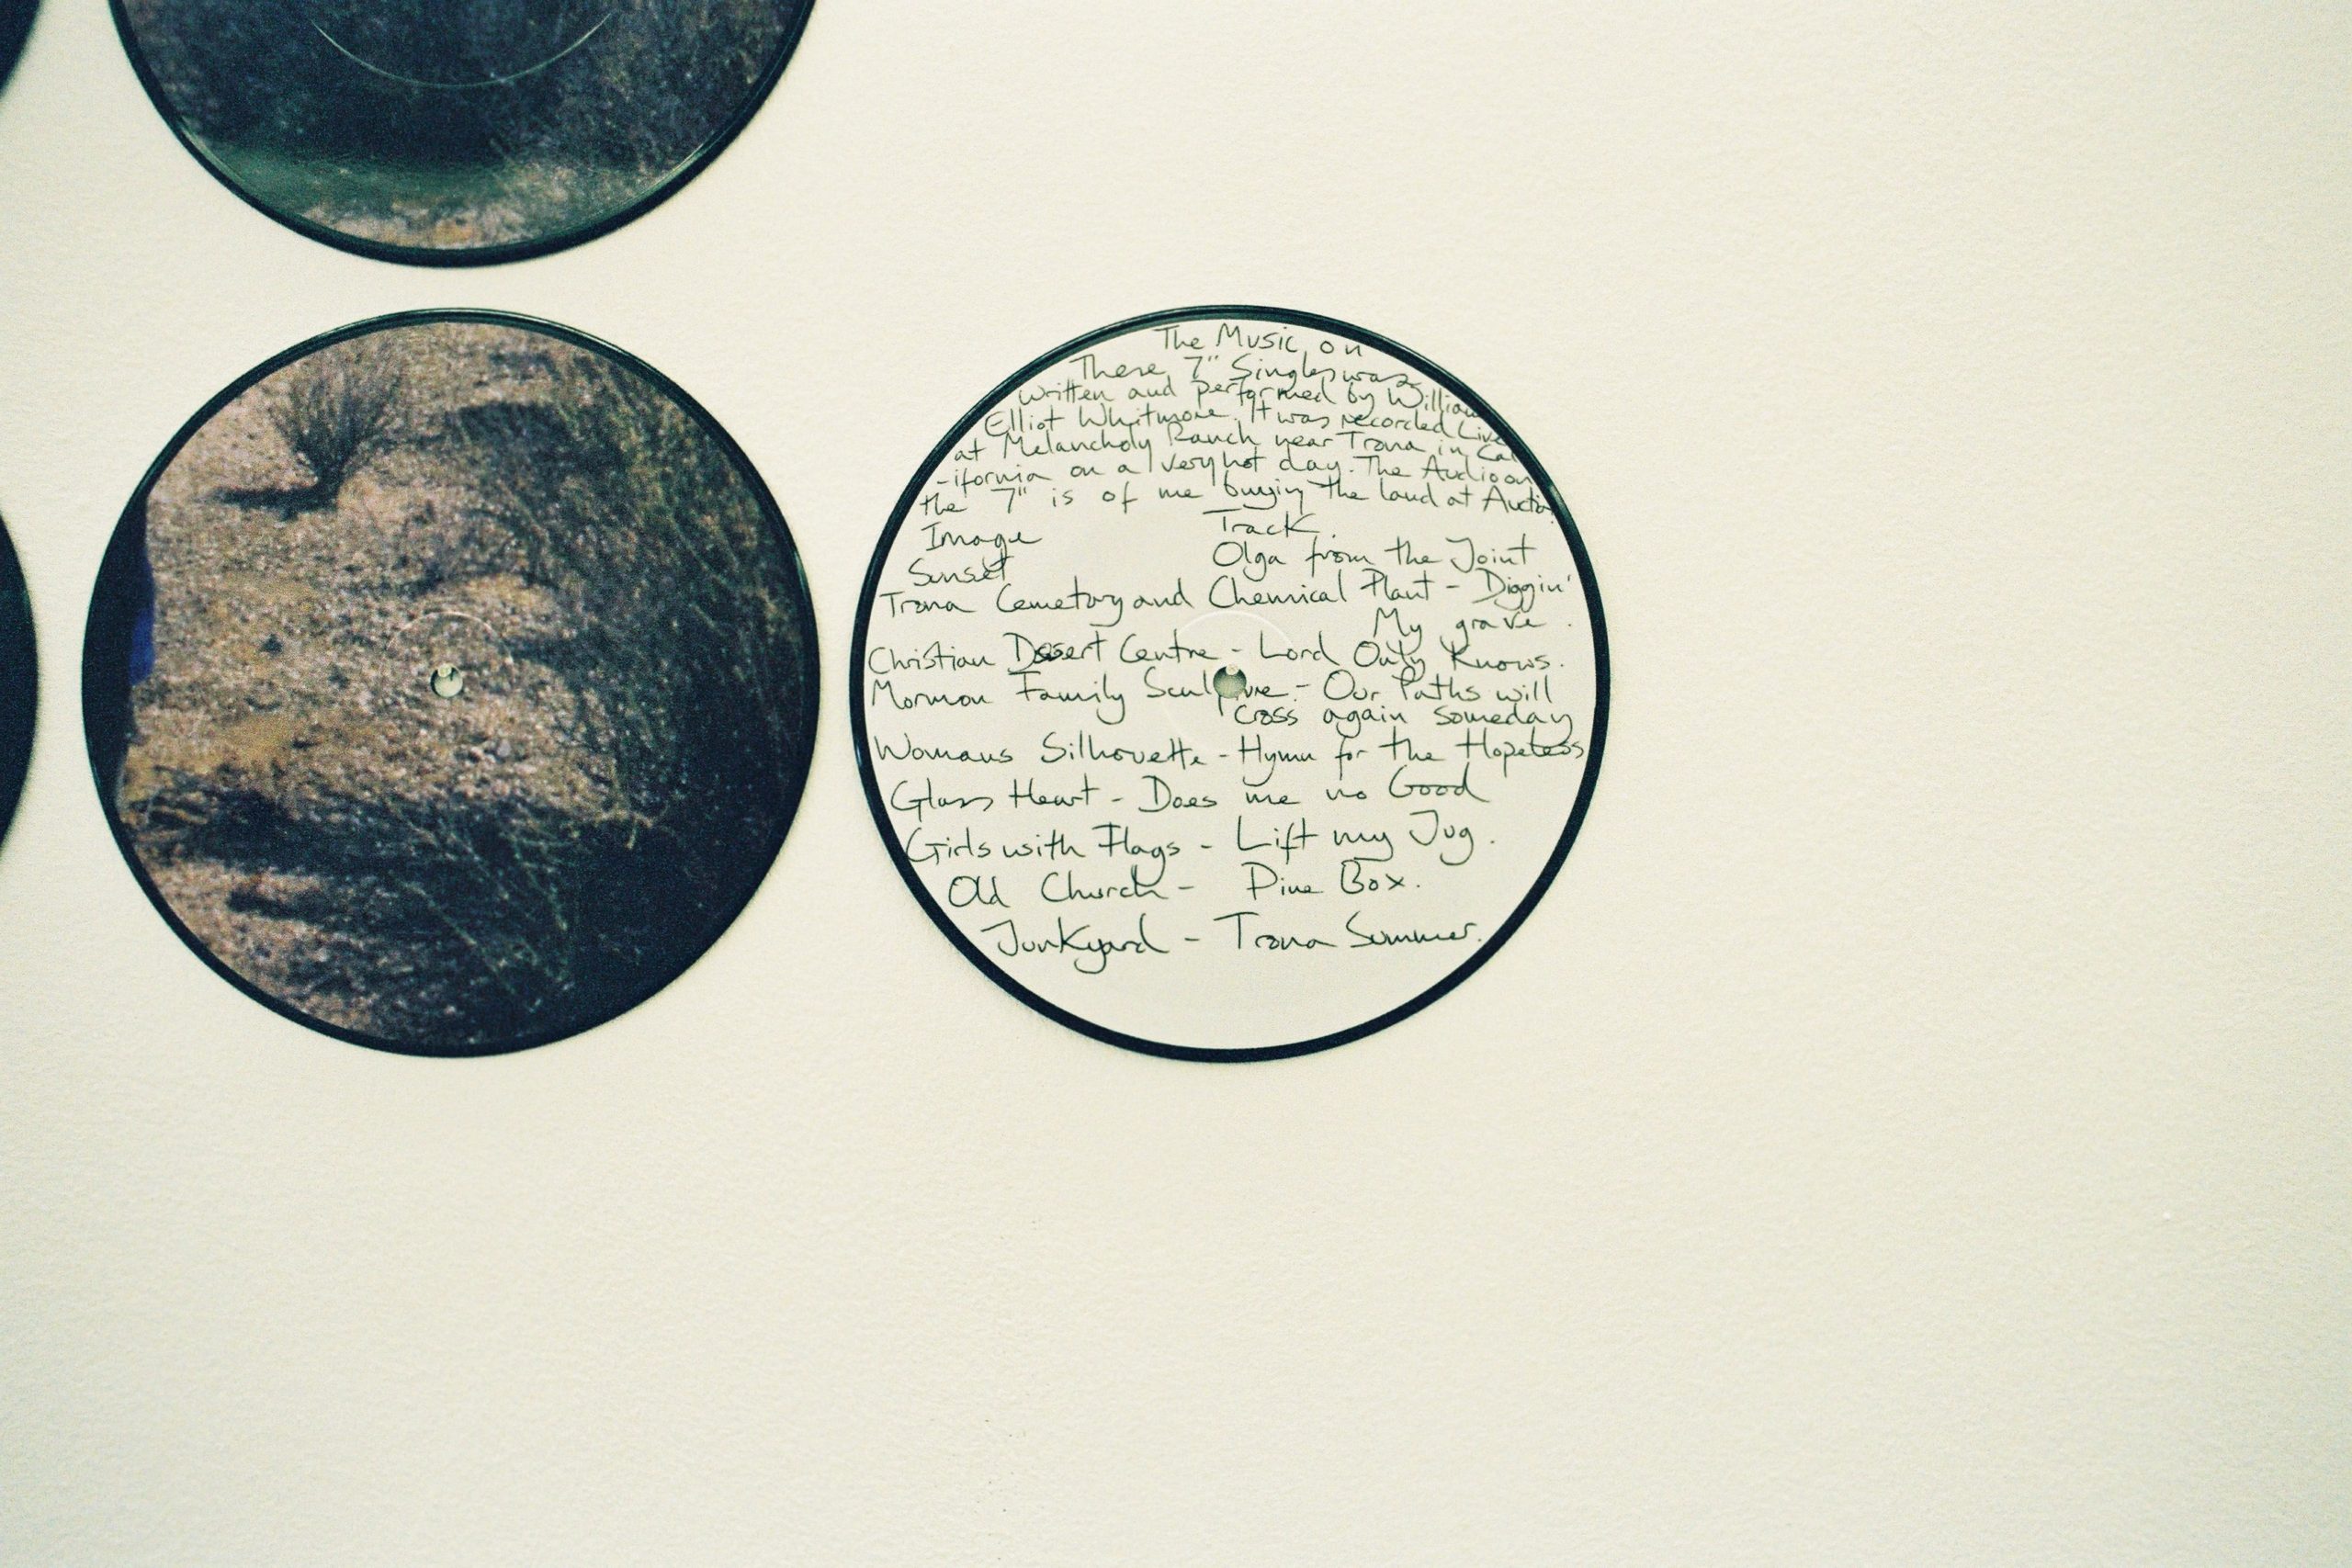 The Music on
These 7" Singles was
written and performed by William
Elliot Whitmore. It was recorded Live
at Melancholy Ranch near Trona in Cal
-ifornia on a very hot day. The Audio on
the 7" is of me buying the land at Auction
Image Track.
Sunset Olga from the Joint
Trona Cemetory and Chemical Plant - Diggin'
My grave.
Christian Desert Centre - Lord Only Knows.
Mormon Family Sculpture - Our Paths will
cross again someday
Womans Silhouette - Hymn for the Hopeless
Glass Heart - Does me no Good
Girls with Flags - Lift my Jug.
Old Church - Pine Box.
Junkyard - Trona Summer.